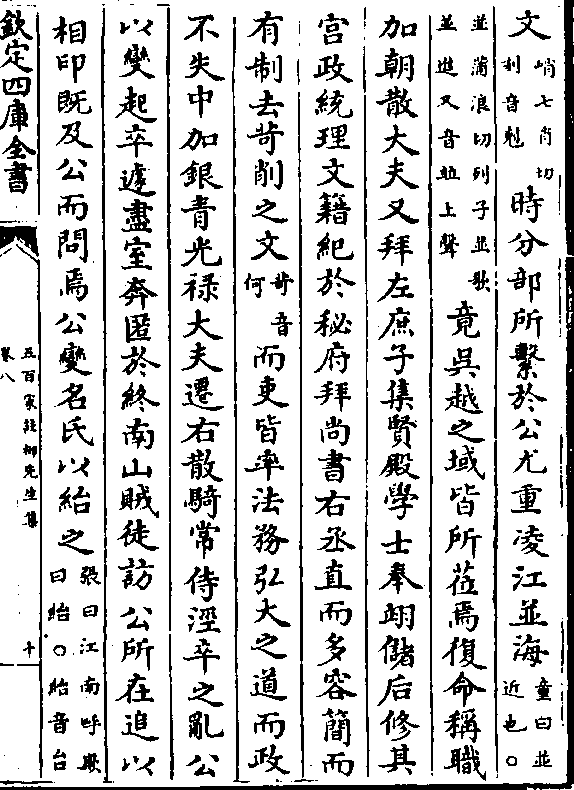 文峭七肖切刻音剋時分部所繫於公尤重凌江並海童曰並近也〇
並蒲浪切列子並歌並進又音並上聲竟吳越之域皆所蒞焉復命稱職
加朝散大夫又拜左庶子集賢殿學士奉翊儲后修其
宫政統理文籍紀於秘府拜尚書右丞直而多容簡而
有制去苛削之文苛音何而吏皆率法務弘大之道而政
不失中加銀青光禄大夫遷右散騎常侍涇卒之亂公
以變起卒遽盡室奔匿於終南山賊徒訪公所在追以
相印既及公而問焉公變名氏以紿之張曰江南呼欺曰紿〇紿音台
欽定四庫全書
五百家註柳先生集
卷八
十